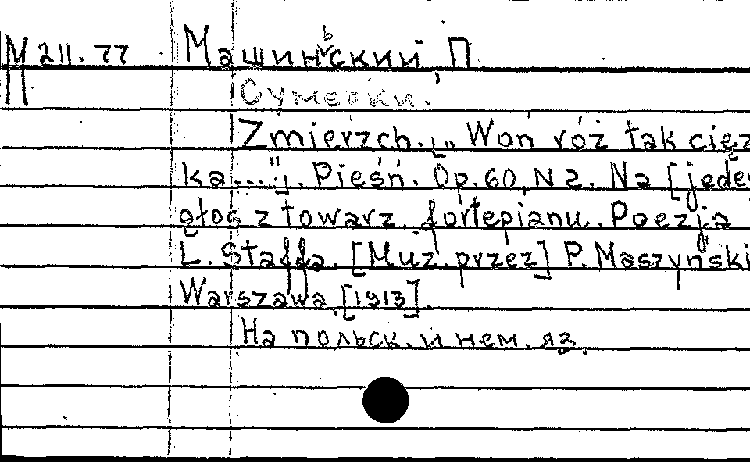 М 211.77 Машиньский, П.
П
Сумерки.
Zmierzch. [„Woń róż tak cięż
ka...."]. Pieśń. Op. 60, N 2. Na [jeden]
głos z towarz. fortepianu. Poezja
L. Staffa. [Muz. przez] P. Maszyński
Warszawa [1913].
На польск. и нем. яз.